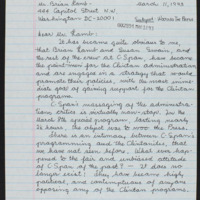 Mr Brian Lamb - March 11, 1993
400 Capitol Street N.W
Washington DC - 20001
Dear Mr. Lamb:
It has become quite obvious to me,
that Brian Lamb and Susan Swain, and
the rest of the crew at C Span, have become
the point men for the Clinton administration
and are engaged in a strategy that would
promote their policies, with the most immediate
goal of gaining support for the Clinton
program.
C Span's massaging of the administration
critics is virtually non-stop. In the
hours, the object was to
There is an intimacy between C Span's
programming and the Clintonites, that
we have not seen before. What ever happened
to the fair and unbiased attitude
of C Span of the past? - It does no
longer exist! They have become high
political, and contemptuous of anyone
opposing any of the Clinton programs.